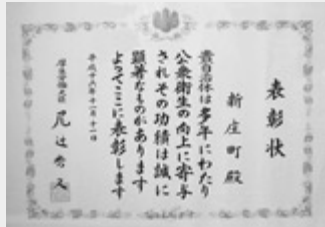 表彰状
新庄町殿
貴自治体は多年にわたり
公衆衛生の向上に寄与
されその功績は誠に
顕著なものがあります
よってここに表彰します
平成十六年十一月十一日
厚生労働大臣 尾辻秀久